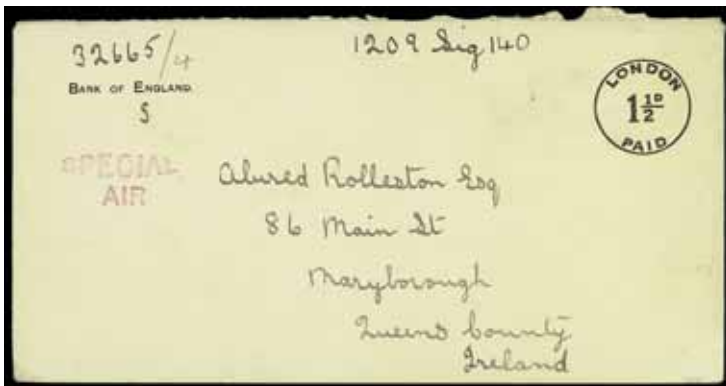 32665/4
1209 Sig 140
BANK OF ENGLAND.
S
LONDON
1 1/2 D
PAID
SPECIAL
AIR
Alured Rolleston Esq
86 Main St
Maryborough
Queens County
Ireland